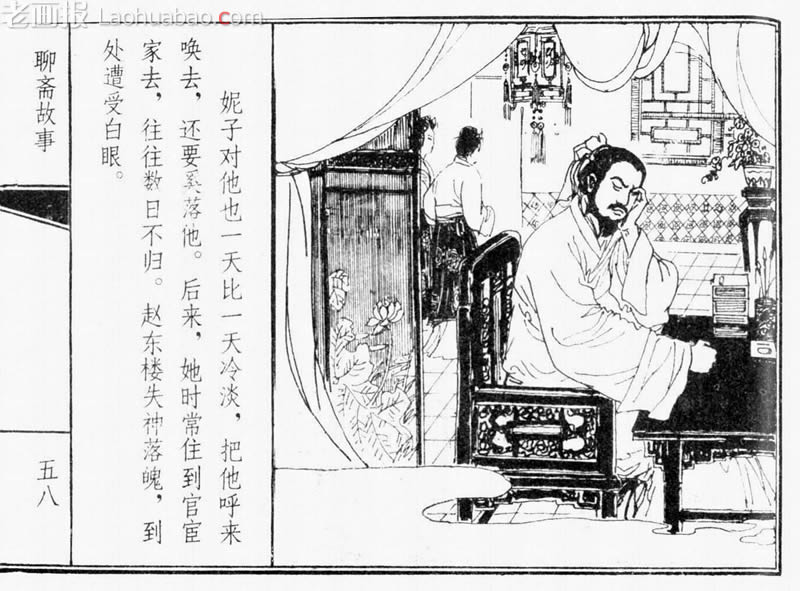 老画报 Laohuabao.com
妮子对他也一天比一天冷淡，把他呼来
唤去，还要奚落他。后来，她时常住到官宦
家去，往往数日不归。赵东楼失神落魄，到
处遭受白眼。
聊斋故事
五八